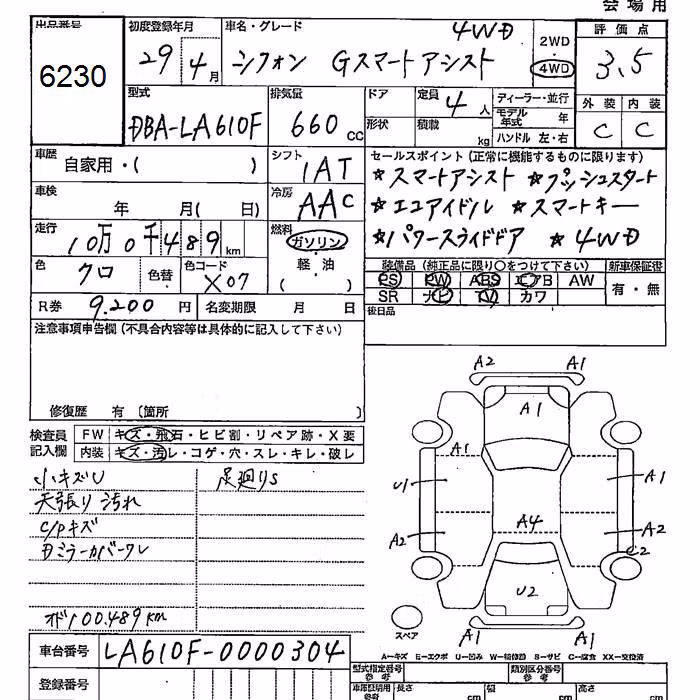 会場用
出品番号 初度登録年月 車名・グレード 評価点
6230 29年4月 シフォン Gスマートアシスト 4WD 2WD 4WD 3.5
型式 排気量 ドア 定員 4人 ディーラー・並行 外装 内装
DBA-LA610F 660cc 形状 積載 kg モデル年式 年 C C
ハンドル 左・右
車歴 自家用・( ) シフト 1AT セールスポイント(正常に機能するものに限ります)
車検 年 月( 日) 冷房 AAC ☆スマートアシスト ☆プッシュスタート
☆エコアイドル ☆スマートキー
走行 10万0千489km 燃料 ガソリン ☆パワースライドドア ☆4WD
軽・油
( )
色 クロ 色替 色コード X07 装備品(純正品に限り○をつけて下さい) 新車保証書
PS PW ABS エアB AW 有・無
R券 9.200円 名変期限 月 日 SR ナビ TV カワ
注意事項申告欄(不具合内容等は具体的に記入して下さい) 後日品
修復歴 有 〔箇所 〕
検査員記入欄 FW キズ・飛石・ヒビ割・リペア跡・X要
内装 キズ・汚レ・コゲ・穴・スレ・キレ・破レ
小キズU 足廻りS
天張り汚れ
C/Pキズ
Dミラーカバーワレ
オド100.489km
A2 A1
A1
A1 A1
U1
A2 A4 A2
C2
U2
A1 A1
スペア
A-キズ E-エクボ U-凹み W-補修跡 B-サビ C-腐食 XX-交換済
車台番号 LA610F-0000304 型式指定番号 参考 類別区分番号 参考
登録番号 車庫証明用 参考 長さ cm 幅 cm 高さ cm